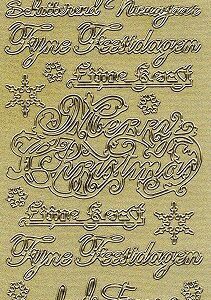 Schitterend Nieuwjaar
Fijne Feestdagen
Fijne Kerst
Merry
Christmas
Fijne Kerst
Fijne Feestdagen